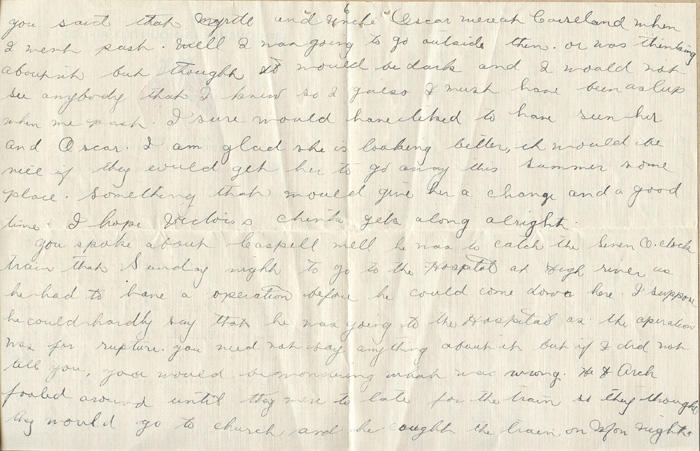 you said that Myrtle and "Uncle" Oscar were at Causeland when
I went past. Well I was going to go outside then. or was thinking
about it but thought it would be dark and I would not
see anybody that I knew so I guess I must have been aslup
when we past. I sure would have liked to have seen her
and Oscar. I am glad she is looking better, it would be
nice if they could get her to go away this summer some
place. Something that would give her a change and a good
time. I hope chink gets along alright.
you spoke about Caspell well he was to catch the Seven O. clock
train that Sunday night to go to the Hospital at High river as
he had to have a operation before he could come down here I suppose
he could hardly say that he was going to the Hospital as the operation
was for rupture. you need not say anything about it but if I did not
tell you, you would be wondering what was wrong. He & Arch
fooled around until they were to late for the train so they thought
they would go to church, and he caught the train on Mon night.